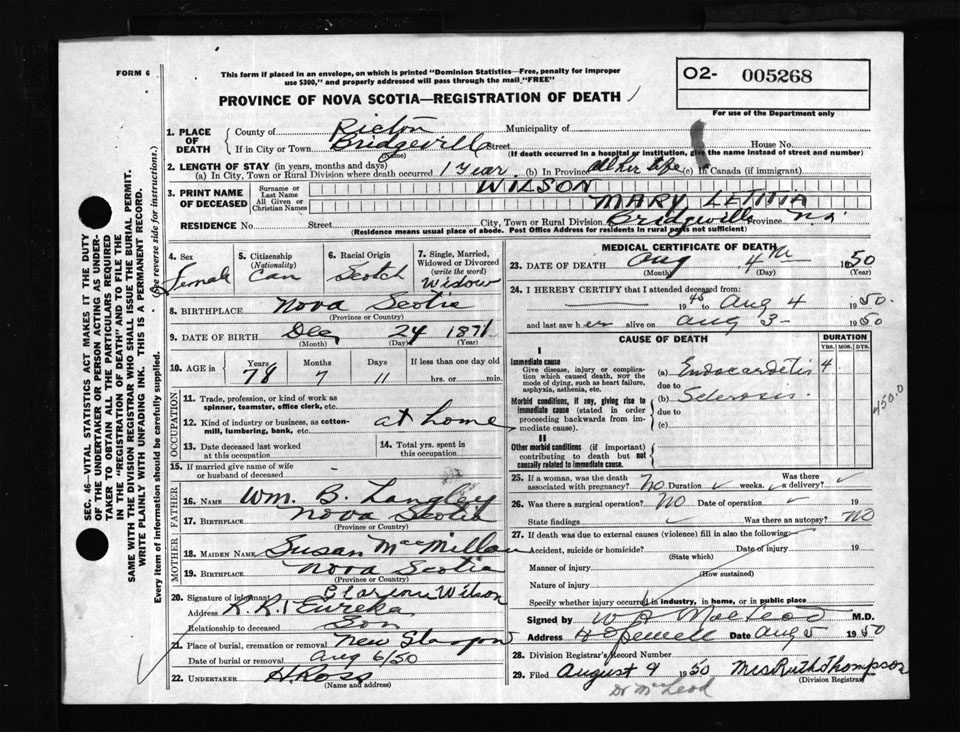 FORM 6
This form if placed in an envelope, on which is printed "Dominion Statistics—Free, penalty for improper
use $300," and properly addressed will pass through the mail "FREE"
O2- 005268
PROVINCE OF NOVA SCOTIA—REGISTRATION OF DEATH
For use of the Department only
1. PLACE OF DEATH
County of Pictou Municipality of
If in City or Town Bridgeville Street House No.
(Name) (If death occurred in a hospital or institution, give the name instead of street and number)
2. LENGTH OF STAY (in years, months and days)
(a) In City, Town or Rural Division where death occurred 1 Year. (b) In Province all her life (c) In Canada (if immigrant)
3. PRINT NAME OF DECEASED
Surname or Last Name WILSON
All Given or Christian Names MARY LETITIA
RESIDENCE No. Street City, Town or Rural Division Bridgeville Province N.S.
(Residence means usual place of abode. Post Office Address for residents in rural parts not sufficient)
4. Sex Female
5. Citizenship (Nationality) Can
6. Racial Origin Scotch
7. Single, Married, Widowed or Divorced (write the word) Widow
8. BIRTHPLACE Nova Scotia
(Province or Country)
9. DATE OF BIRTH Dec 24 1871
(Month) (Day) (Year)
10. AGE in Years 78 Months 7 Days 11 If less than one day old hrs. or min.
OCCUPATION
11. Trade, profession, or kind of work as spinner, teamster, office clerk, etc.
12. Kind of industry or business, as cotton-mill, lumbering, bank, etc. at home
13. Date deceased last worked at this occupation
14. Total yrs. spent in this occupation
15. If married give name of wife or husband of deceased
FATHER
16. NAME Wm. B. Langley
17. BIRTHPLACE Nova Scotia
(Province or Country)
MOTHER
18. MAIDEN NAME Susan MacMillan
19. BIRTHPLACE Nova Scotia
(Province or Country)
20. Signature of informant Clarence Wilson
Address R.R.1 Eureka
Relationship to deceased Son
21. Place of burial, cremation or removal New Glasgow
Date of burial or removal Aug 6/50
22. UNDERTAKER H. Ross
(Name and address)
MEDICAL CERTIFICATE OF DEATH
23. DATE OF DEATH Aug 4th 1950
(Month) (Day) (Year)
24. I HEREBY CERTIFY that I attended deceased from:
1945 to Aug 4 1950.
and last saw her alive on Aug 3- 1950
CAUSE OF DEATH
DURATION
YRS. MOS. DYS.
I
Immediate cause
Give disease, injury or complication which caused death, nor the mode of dying, such as heart failure, asphyxia, asthenia, etc.
(a) Endocarditis 4
due to
Morbid conditions, if any, giving rise to immediate cause (stated in order proceeding backwards from immediate cause).
(b) Sclerosis.
due to
(c)
450.0
II
Other morbid conditions (if important) contributing to death but not causally related to immediate cause.
25. If a woman, was the death associated with pregnancy? No Duration ✓ weeks. Was there a delivery? ✓
26. Was there a surgical operation? No Date of operation ✓ 19
State findings ✓ Was there an autopsy? No
27. If death was due to external causes (violence) fill in also the following:
Accident, suicide or homicide? Date of injury 19
(State which)
Manner of injury
(How sustained)
Nature of injury
Specify whether injury occurred in industry, in home, or in public place
Signed by MacLeod M.D.
Address Hopewell Date Aug 5 1950
28. Division Registrar's Record No.
29. Filed August 9 1950 Mrs Ruth Thompson
(Division Registrar)
Dr MacLeod
SEC. 46—VITAL STATISTICS ACT MAKES IT THE DUTY
OF THE UNDERTAKER OR PERSON ACTING AS UNDER-
TAKER TO OBTAIN ALL THE PARTICULARS REQUIRED
IN THE "REGISTRATION OF DEATH" AND TO FILE THE
SAME WITH THE DIVISION REGISTRAR WHO SHALL ISSUE THE BURIAL PERMIT.
WRITE PLAINLY WITH UNFADING INK. THIS IS A PERMANENT RECORD.
Every item of information should be carefully supplied. (See reverse side for instructions.)